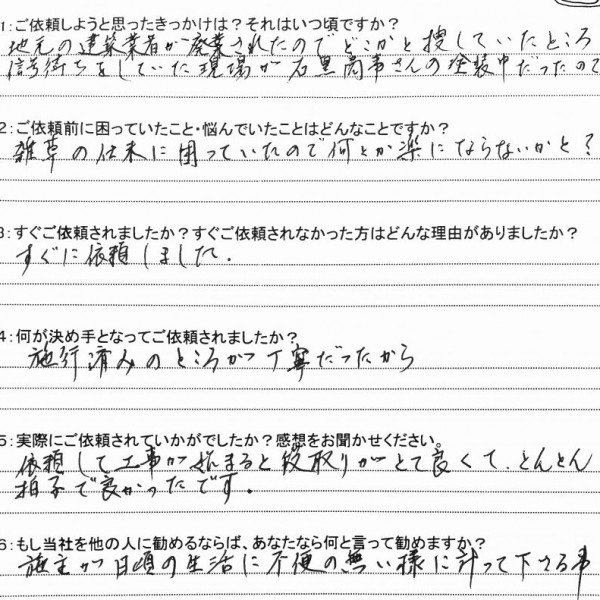 1：ご依頼しようと思ったきっかけは？それはいつ頃ですか？
地元の建築業者が廃業されたのでどこかと捜していたところ
信号待ちをしていた現場が石黒商事さんの塗装中だったので
2：ご依頼前に困っていたこと・悩んでいたことはどんなことですか？
雑草の仕末に困っていたので何とか楽にならないかと？
3：すぐご依頼されましたか？すぐご依頼されなかった方はどんな理由がありましたか？
すぐに依頼しました。
4：何が決め手となってご依頼されましたか？
施行済みのところが丁寧だったから
5：実際にご依頼されていかがでしたか？感想をお聞かせください。
依頼して工事が始まると段取りがとて良くて、とんとん
拍子で良かったです。
6：もし当社を他の人に勧めるならば、あなたなら何と言って勧めますか？
施主が日頃の生活に不便の無い様に計って下さる事